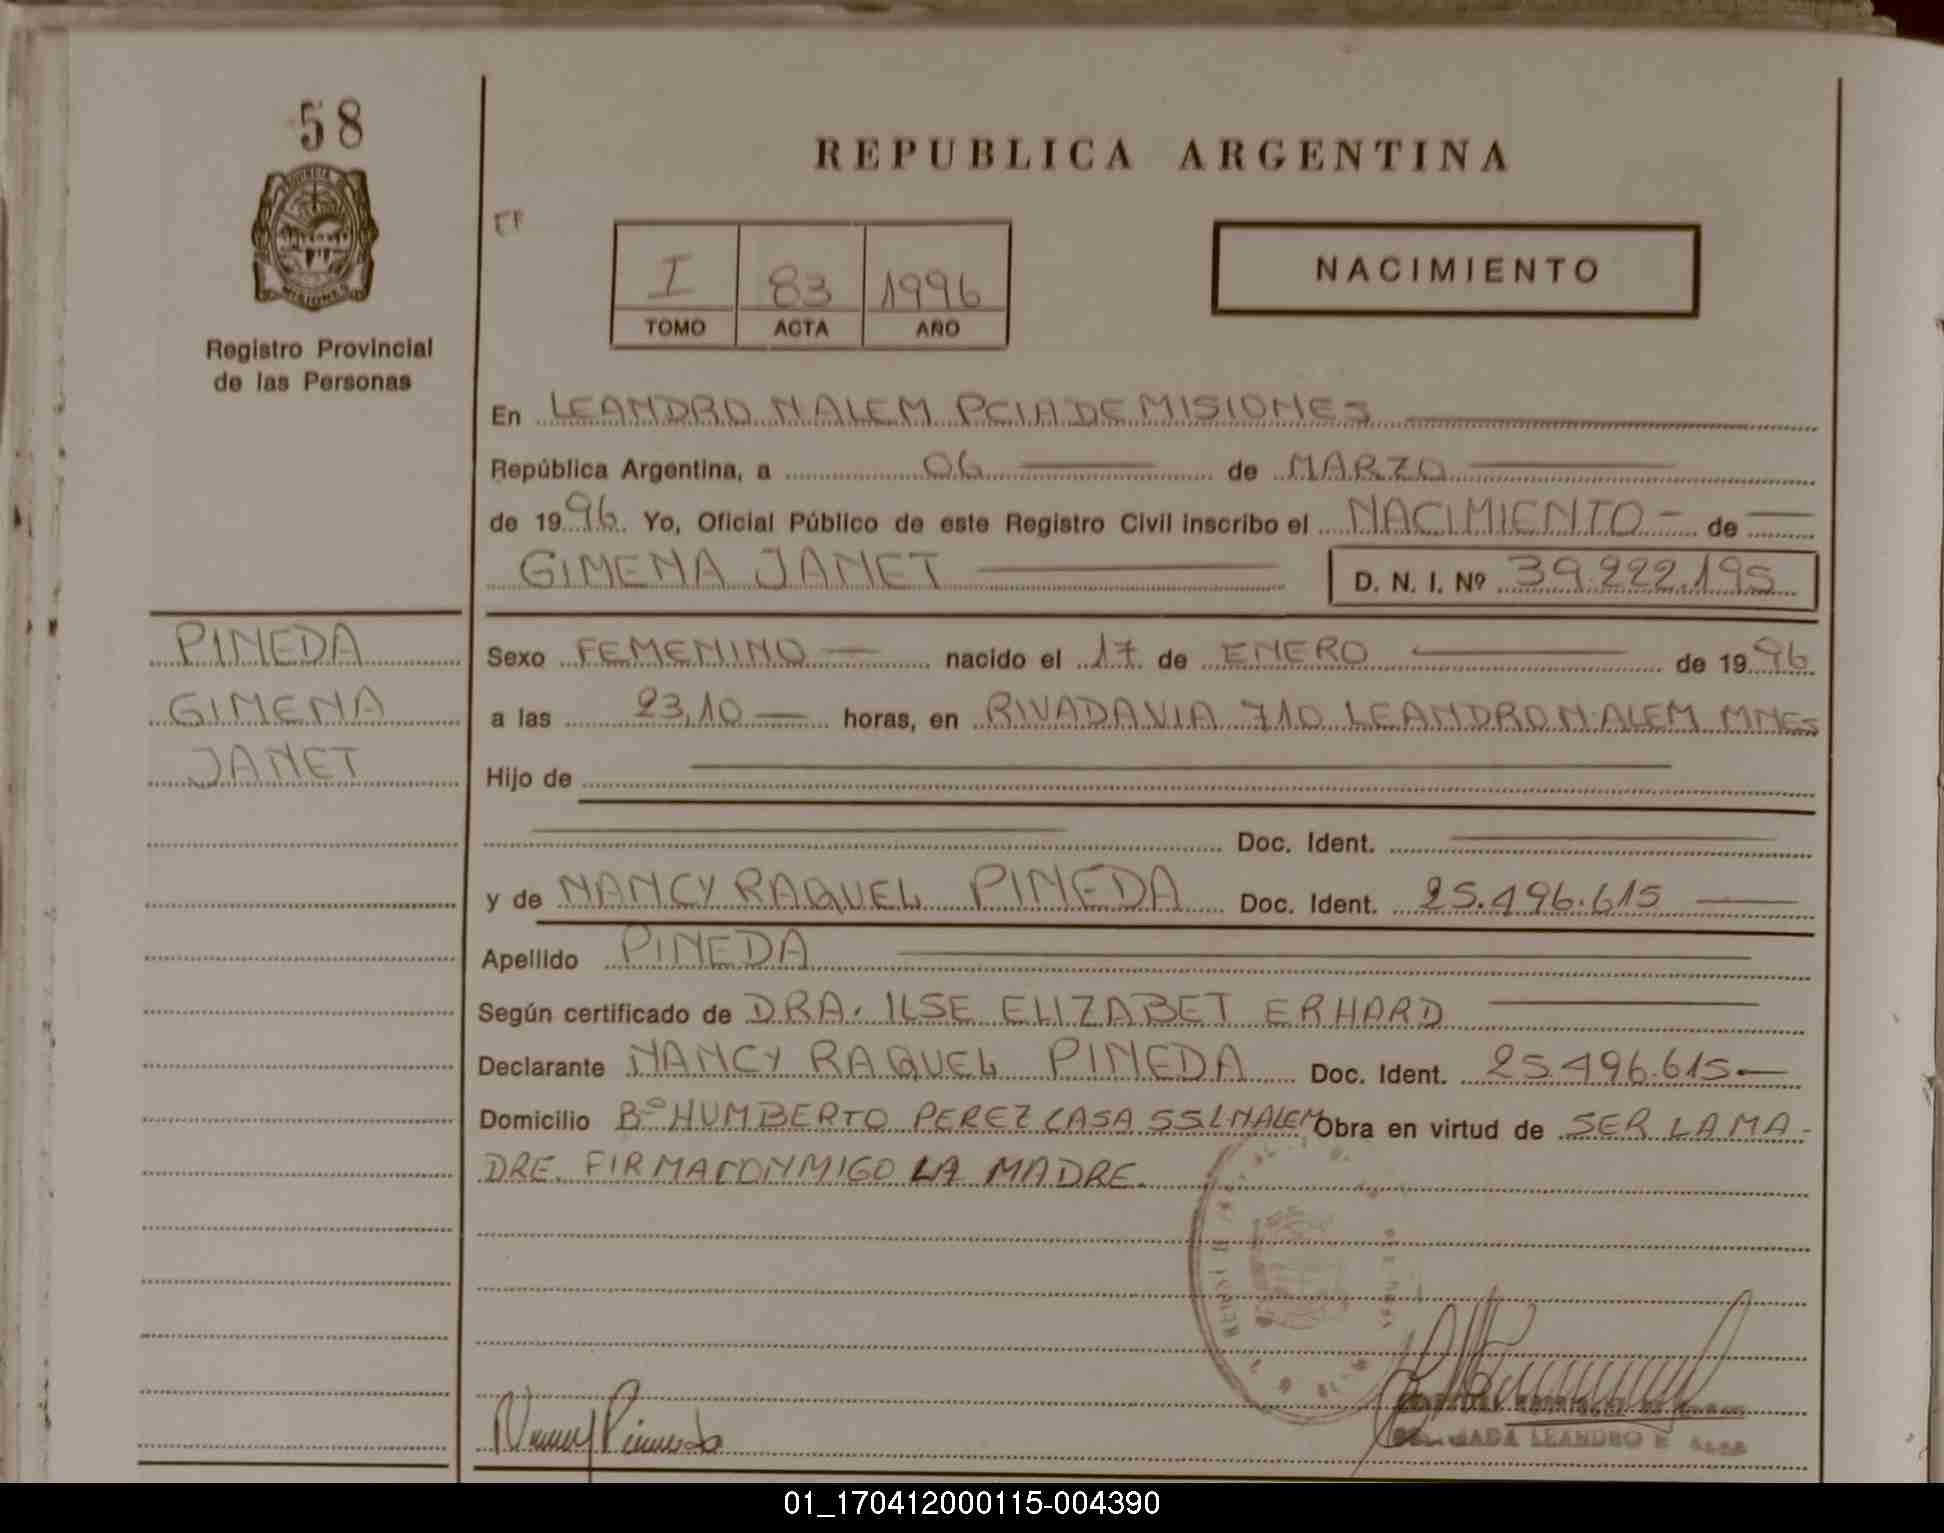 58
REPUBLICA ARGENTINA
EF
I 83 1996
TOMO ACTA AÑO
NACIMIENTO
MISIONES
Registro Provincial
de las Personas
En LEANDRO N ALEM PCIA DE MISIONES
República Argentina, a 06 de MARZO
de 1996. Yo, Oficial Público de este Registro Civil inscribo el NACIMIENTO - de
GIMENA JANET D. N. I. Nº 39.222.195
PINEDA
GIMENA
JANET
Sexo FEMENINO nacido el 17 de ENERO de 1996
a las 23,10 horas, en RIVADAVIA 710 LEANDRO N. ALEM MNES
Hijo de
Doc. Ident.
y de NANCY RAQUEL PINEDA Doc. Ident. 25.496.615
Apellido PINEDA
Según certificado de DRA. ILSE ELIZABET ERHARD
Declarante NANCY RAQUEL PINEDA Doc. Ident. 25.496.615
Domicilio Bº HUMBERTO PEREZ CASA 55 L.N.ALEM Obra en virtud de SER LA MA-
DRE. FIRMA CONMIGO LA MADRE.
Nancy Pineda
LEANDRO N
01_170412000115-004390